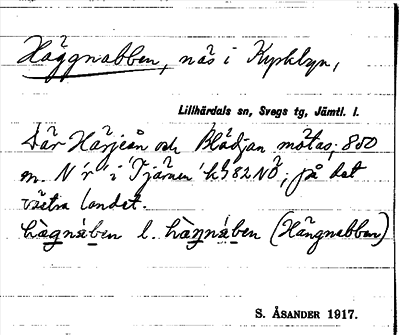 Häggnabben, näs i Kyrkbyn,
Lillhärdals sn, Svegs tg, Jämtl. l.
Där Härjeån och Blädjan mötas, 850
m. N 'r' i 'Tjärnen' k782NÖ, på det
västra landet.
hàgnáben l. hàŋnáben (Hängnabben)
S. ÅSANDER 1917.